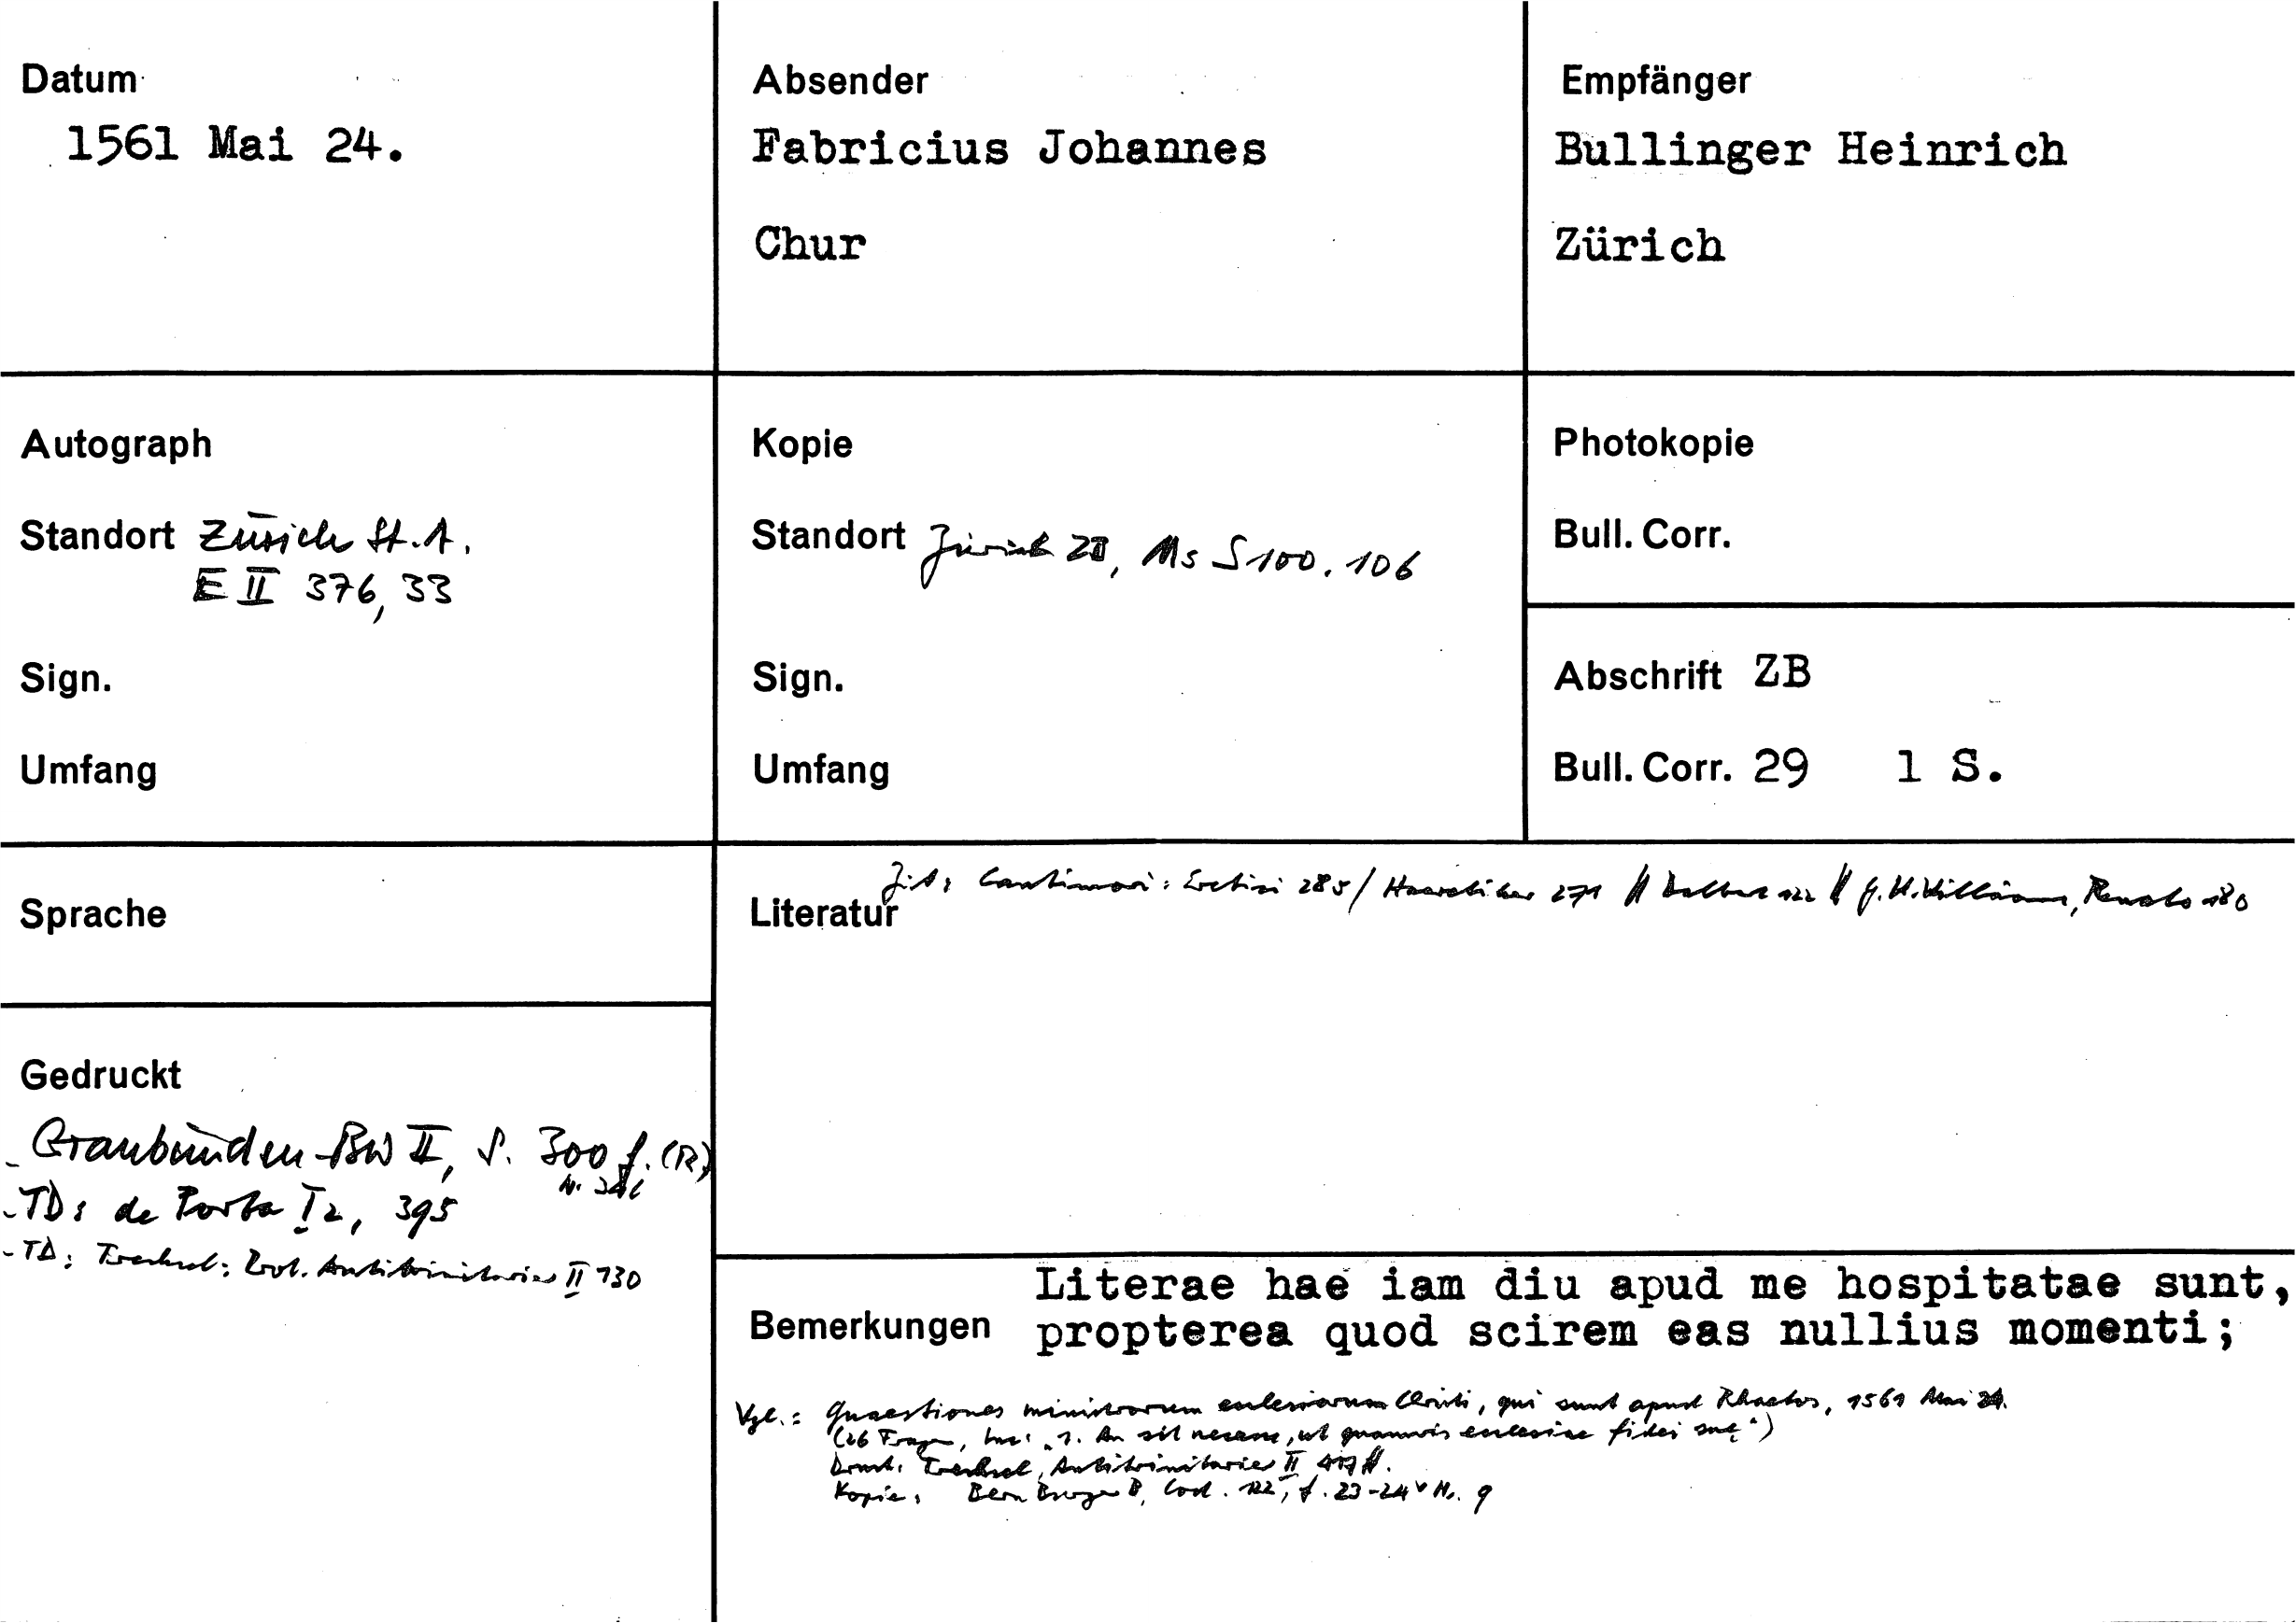 Datum
1561 Mai 24.
Absender
Fabricius Johannes
Chur
Empfänger
Bullinger Heinrich
Zürich
Autograph
Standort Zürich St.A.
E II 376, 33
Sign.
Umfang
Kopie
Standort Zürich ZB, Ms S 100. 106
Sign.
Umfang
Photokopie
Bull. Corr.
Abschrift ZB
Bull. Corr. 29 1 S.
Sprache
Literatur Zit: Cantimori: Eretici 285 / Haeretiker 271 // // G.H. Williams, Renato 180
Gedruckt
- Graubünden-BW II, S. 300 f. (R)
- TD: de Porta I 2, 395
- TD: Trechsel: Prot. Antitrinitarier II 130
Bemerkungen
Literae hae iam diu apud me hospitatae sunt,
propterea quod scirem eas nullius momenti;
Vgl.: Quaestiones ministrorum ecclesiarum Christi, qui sunt apud Rhaetos, 1561 Mai 24.
(26 Fragen, Inc: "1. An sit necesse, ut quamvis ecclesiae fidei suę")
Druck: Trechsel, Antitrinitarier II 417 ff.
Kopie: Bern Burger B, Cod. 122, f. 23-24v N. 9